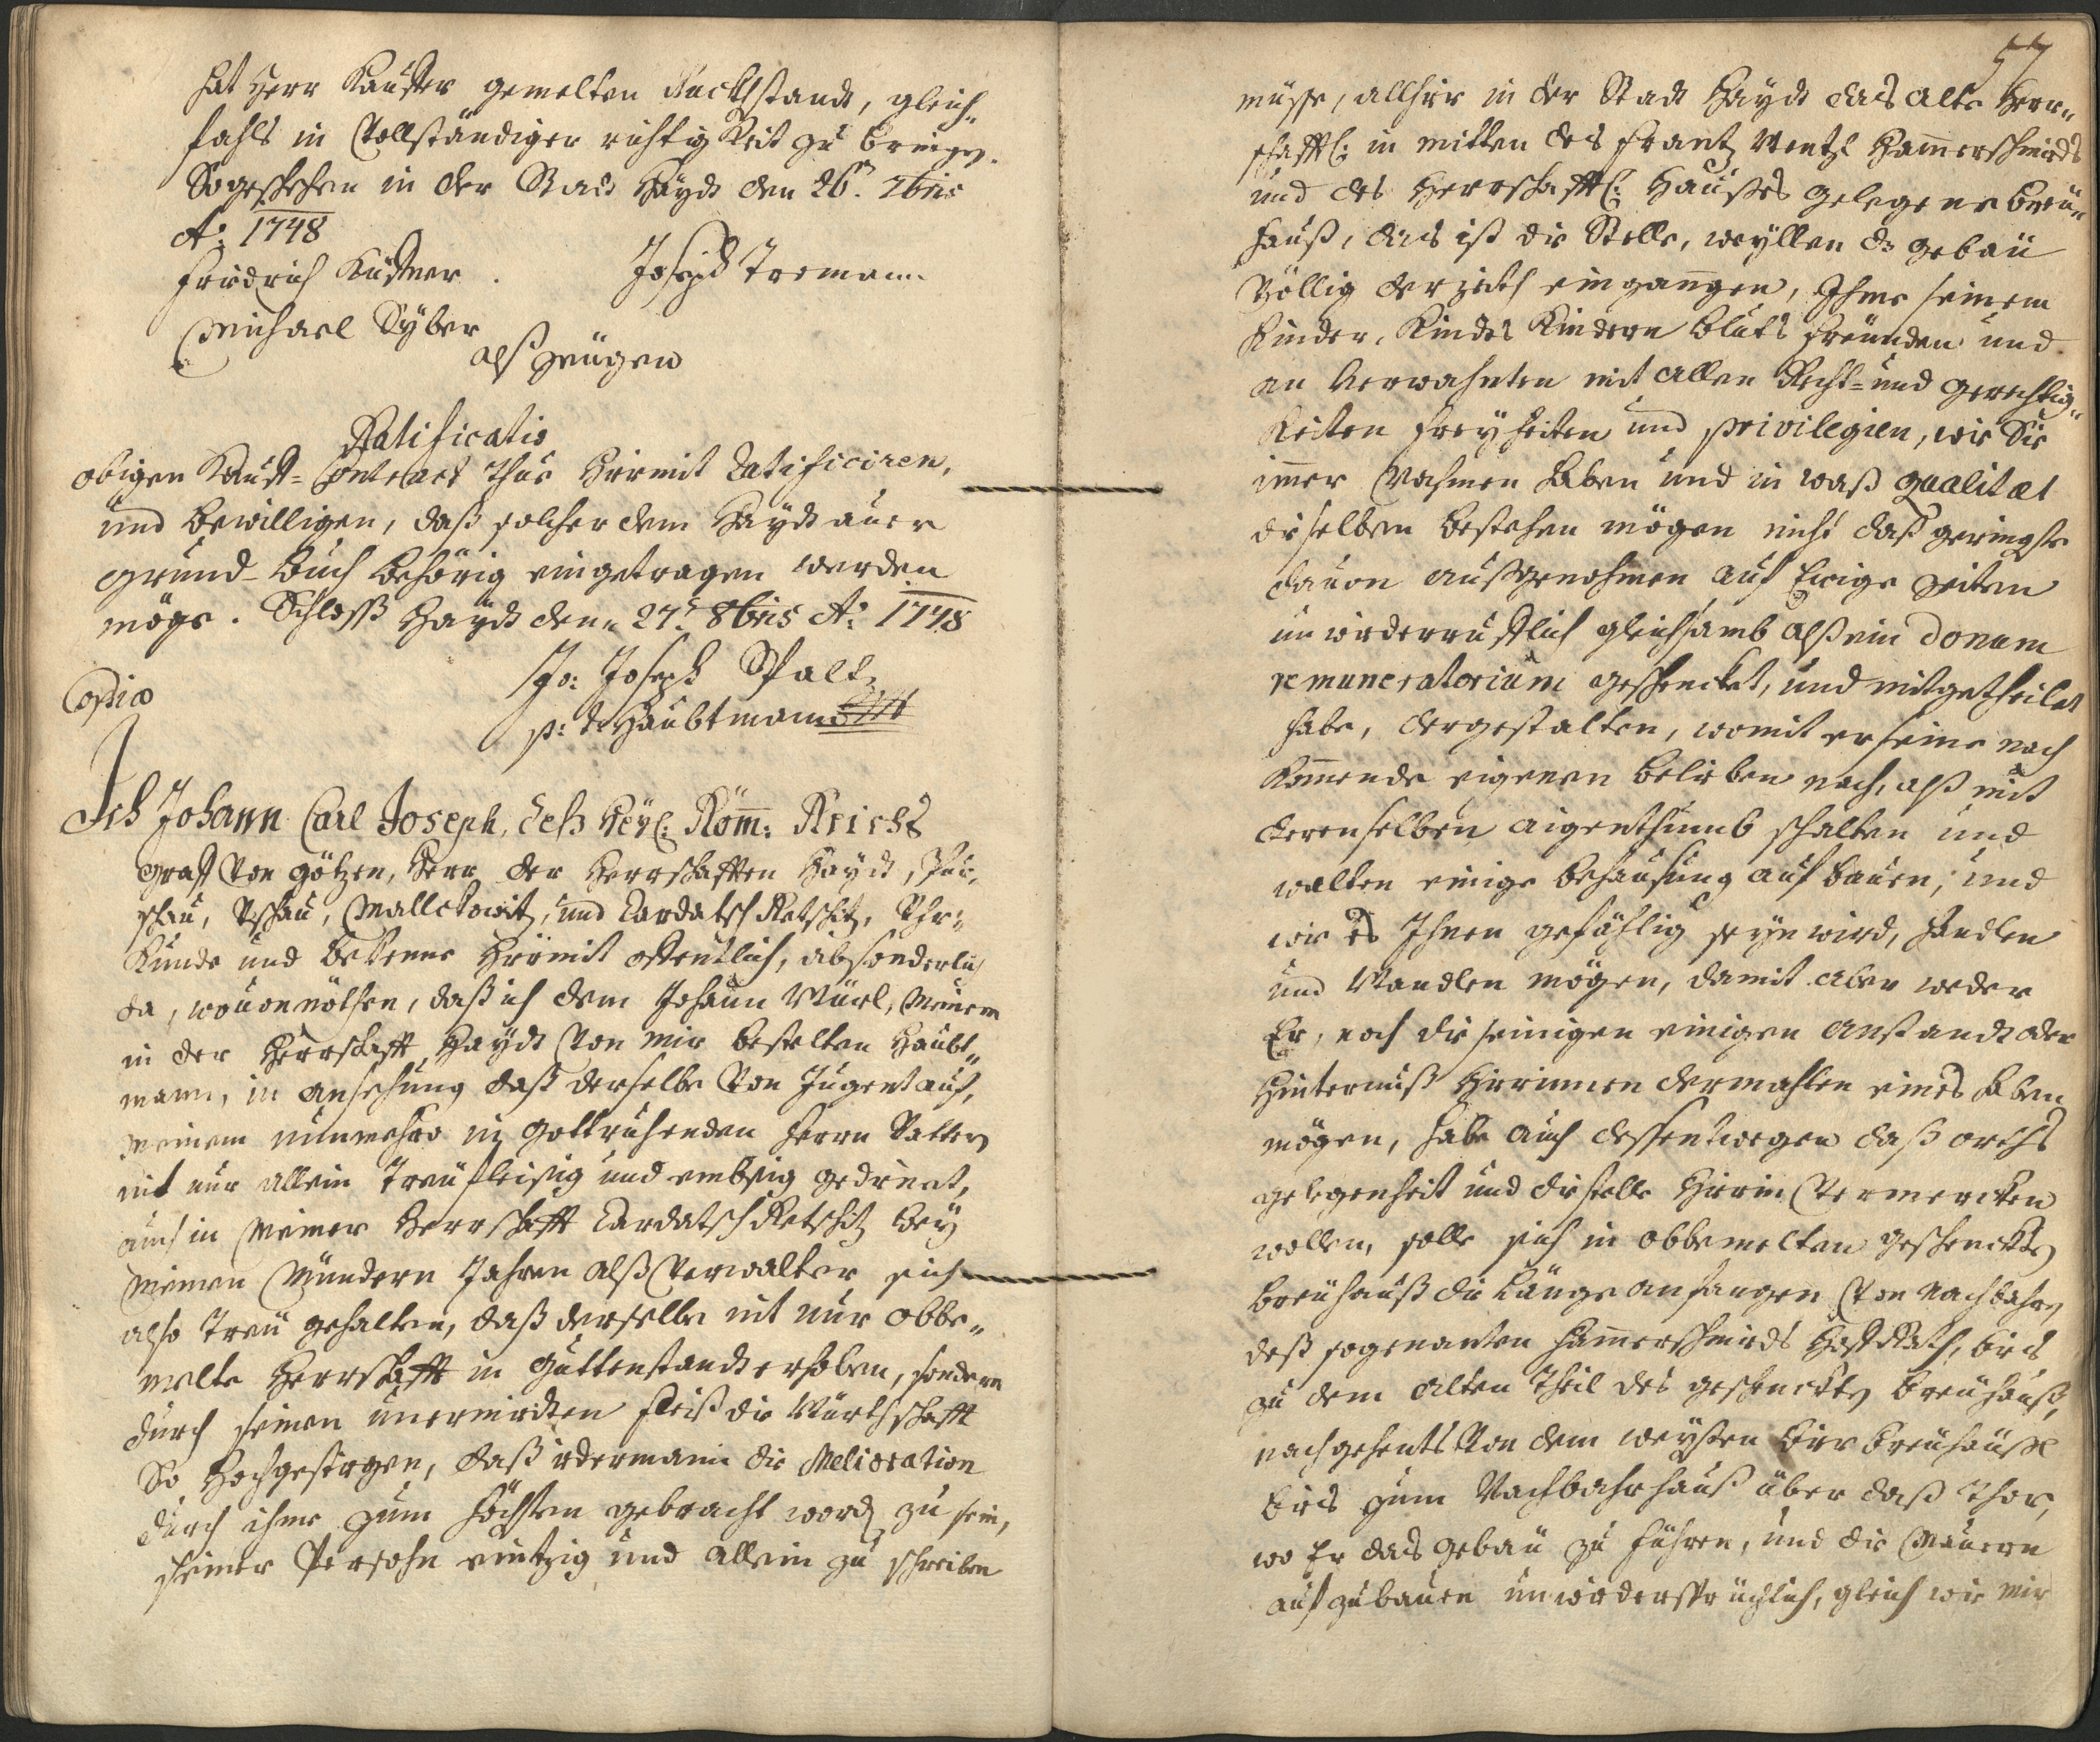 hat Herr Kauffer gemelten Ruckhstandt, gleich„
fahls in Vollständiger richtigkeit zu bringen.
So geschehen in der Stadt Haydt den 26ten 7bris
Ao: 1748
Fridrich Küstner. Joseph Tremann
Michael Syber
alß Zeügen
Ratificatio
obigen Kauff-Contract Thue hiermit Ratificiren,
und bewilligen, daß solcher dem Haydt auer
grund-buch behörig eingetragen werden
möge. Schloß Haydt den 27ten 8bris Ao: 1748
Jo: Joseph Spaltz
p: t: Haubtmann
Copia
Ich Johann Carl Joseph, deß Heyl: Röm: Reichs
Graff Von Götzen, Herr der Herrschafften Haydt,
schau, Tschau, Malletowitz, und Kardatsch Retschitz, Uhr„
Kunde und bekenne hiermit offentlich, absonderlich
da, wo von nöthen, daß ich dem Johann Würl, Meinem
in der Herrschafft Haydt Von mir bestelten Haubt„
mann, in ansehung daß derselbe Von Jugent auf,
Meinem nunmehro in Gott ruhenden Herrn Vattern
nit nur allein Treu fleißig und embsig gedient,
auch in Meiner Herrschafft Kardatsch Retschitz bey
Meinen Mündern Jahren alß Verwalter sich
also Treu gehalten, daß derselbe nit nur obbe„
melte Herrschafft in Guttenstandt erhoben, sondern
durch seinen unermidten fleiß die Würthschafft
So hochgestigen, daß iedermann die Melioration
durch ihme zum höchsten gebracht word zu sein,
seiner Persohn eintzig und allein zu schreiben
57
müsse, allhier in der Stadt Haydt das alte Herr„
schafftl: in mitten des Frantz Wentzl Hammerschmidts
und des Herrschafftl: Haußes gelegene breü„
hauß, das ist die Stelle, weyllen dz gebäu
Völlig eingangen, Ihme seinem
Kinder, Kindes Kindern bluts freünden und
an Verwahnten mit allen Recht- und gerechtig„
keiten freyheiten und privilegien, wie Sie
imer Nahmen haben und in waß qualitæt
dieselben bestehen mögen nicht daß geringste
dauon außgenohmen auf Ewige zeiten
un wiederrufflich gleichsamb alß ein donum
remuneratorium geschencket, und mitgetheilet
habe, dergestalten, womit er seine nach
Kommende eigenen belieben nach, alß mit
derenselben aigenthumb schalten und
walten einige behausung auf bauen, und
wie es Ihnen gefählig seyn wird, handlen
und Wandlen mögen, damit aber weder
Er, noch die seinigen einigen anstandt oder
Hinternuß hierinnen dermahlen eines haben
mögen, habe auch dessentwegen daß orths
gelegenheit und die stelle hierin Vermercken
wollen, solle sich in obbemelten geschenckten
breuhauß die Länge anfangen Von Nachbahrn
deß sogenanten Hammerschmidts Hoff Rath, bies
zu dem alten Theil des geschenckten breuhauß,
nachgehents Von dem weyßen bier breuhaußl
bies zum Nachbahrhauß über daß Thor,
wo Er das gebäu zu führen, und die Mauern
auf zubauen unwiedersprüchlich, gleich wie mir